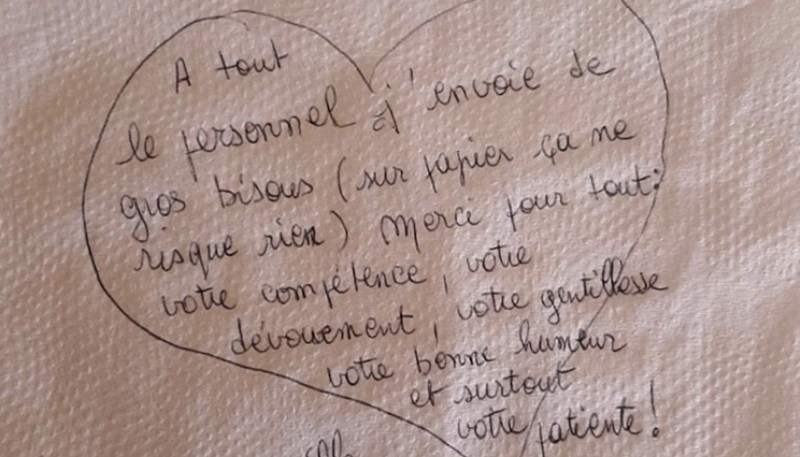 A tout
le personnel j'envoie de
gros bisous (sur papier ça ne
risque rien) Merci pour tout:
votre compétence, votre
dévouement, votre gentillesse
votre bonne humeur
et surtout
votre patiente!